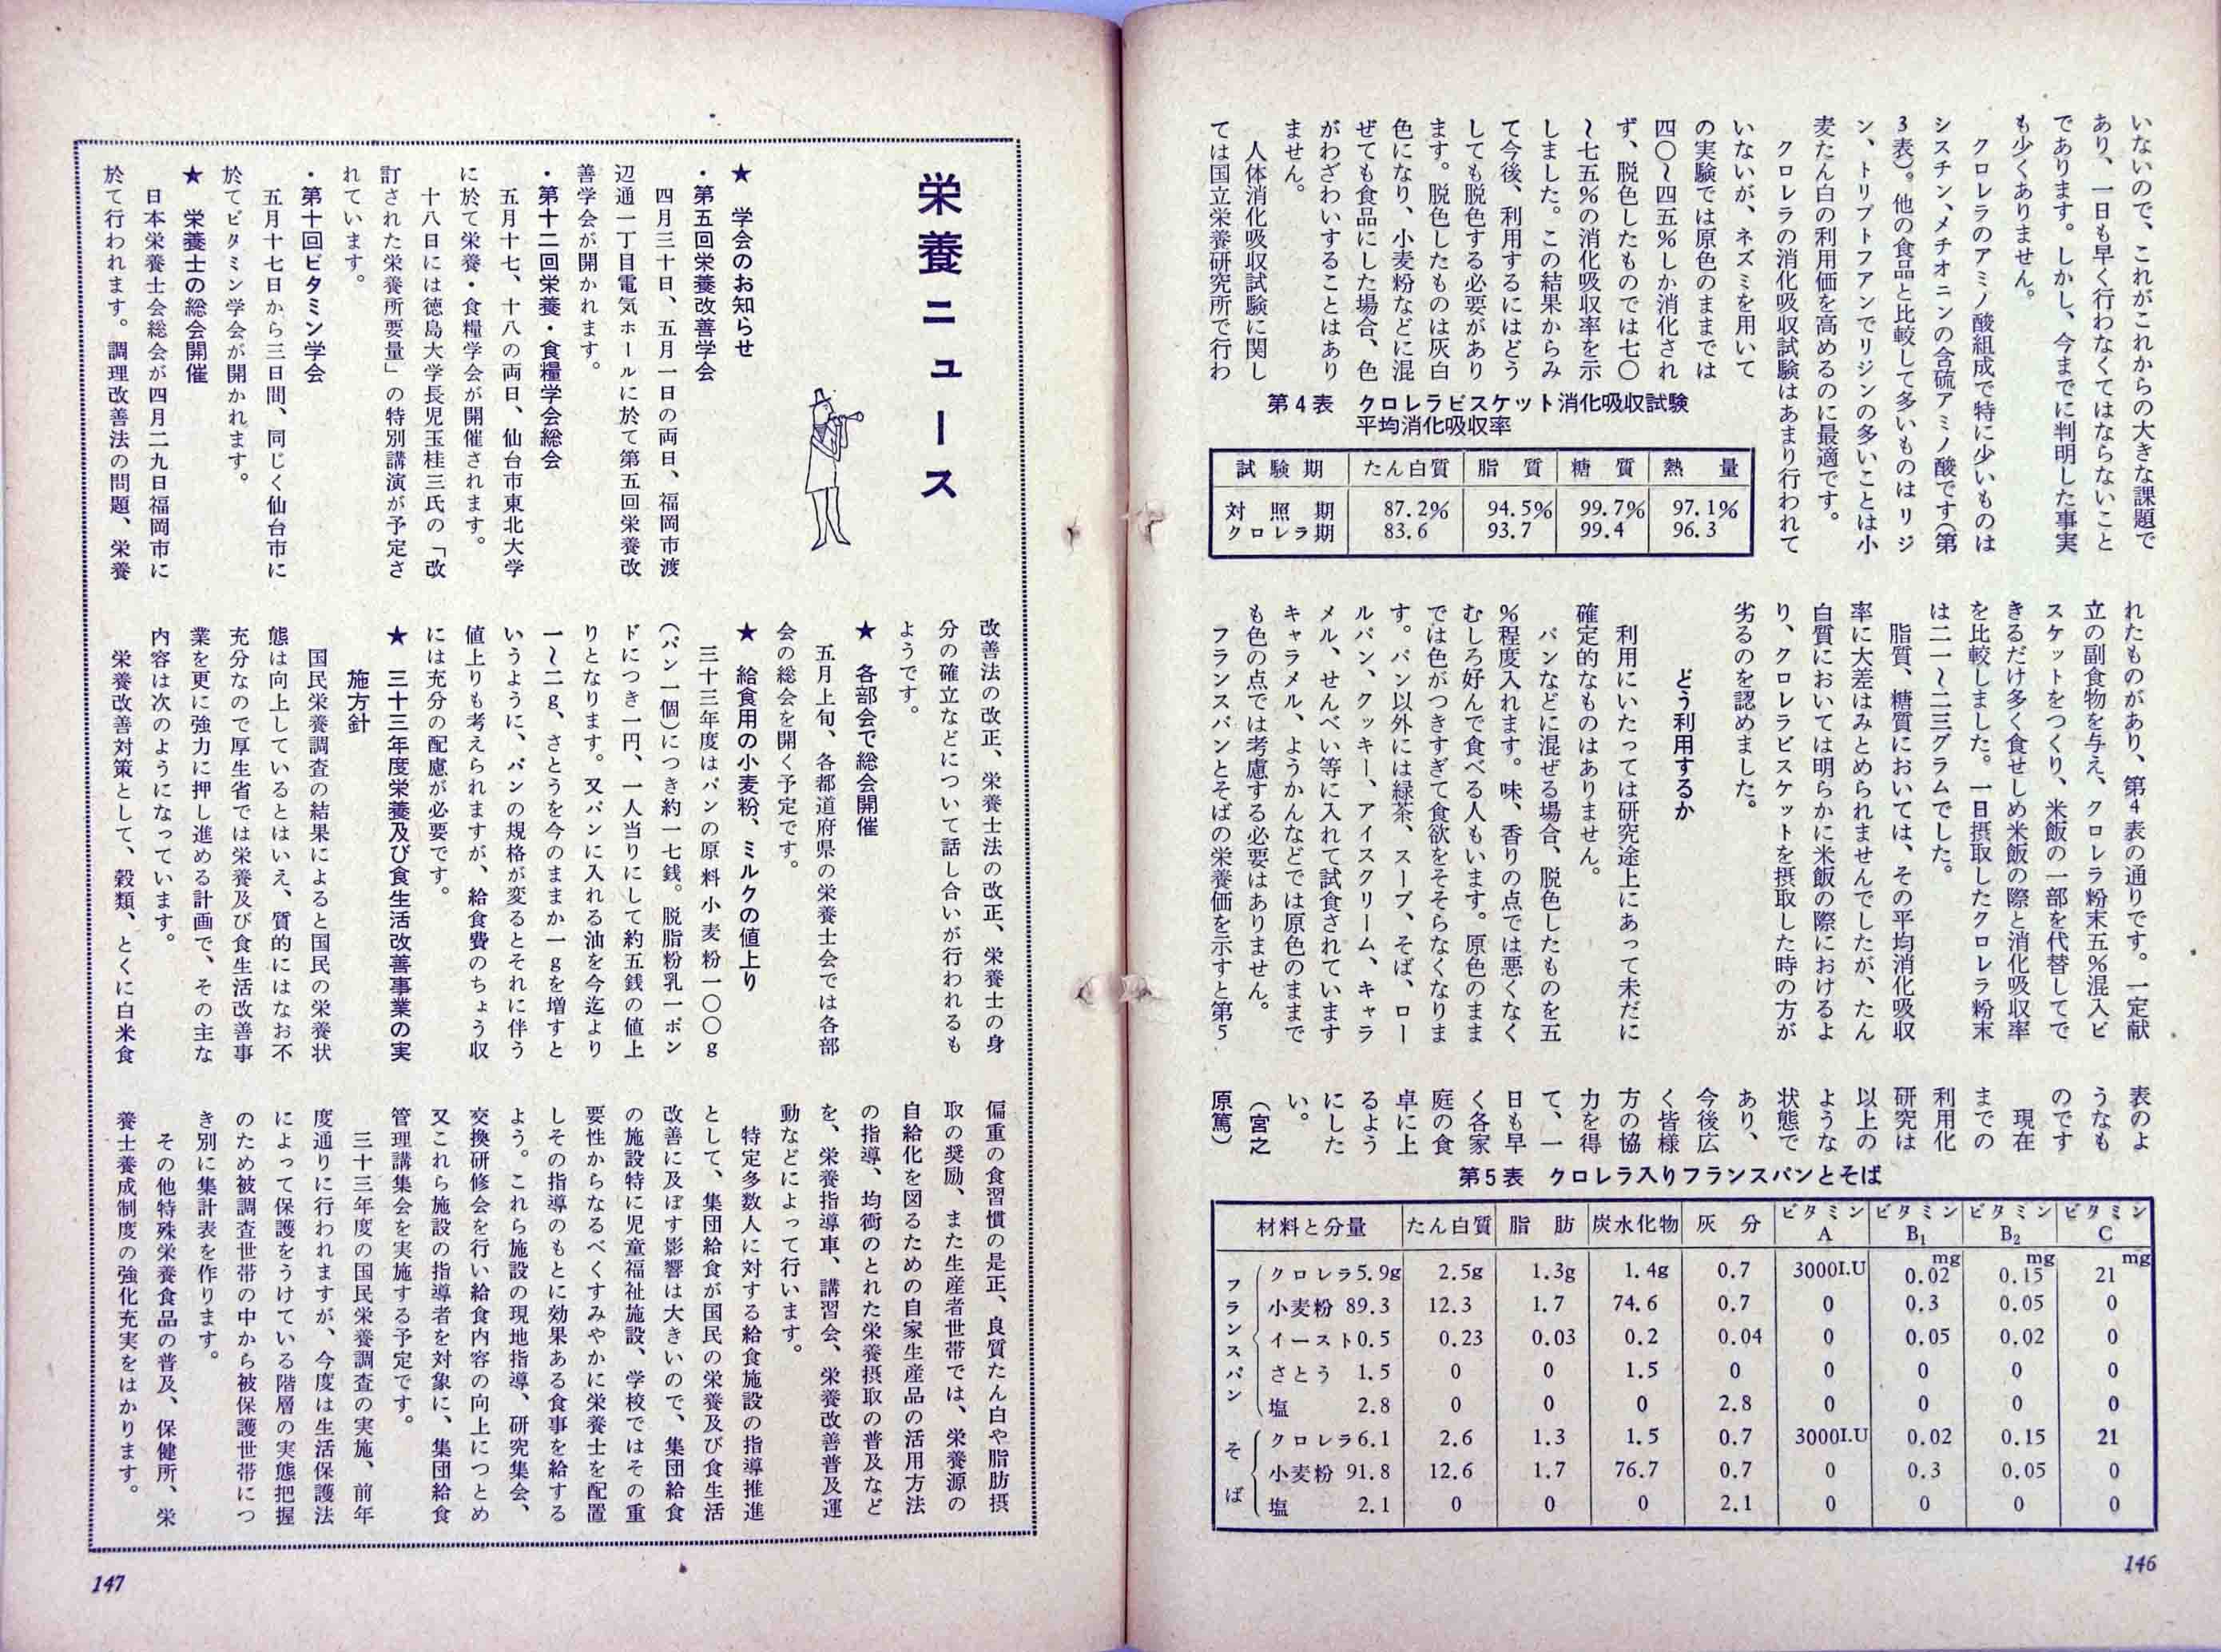 いないので、これがこれからの大きな課題で
あり、一日も早く行わなくてはならないこと
であります。しかし、今までに判明した事実
も少くありません。
クロレラのアミノ酸組成で特に少いものは
シスチン、メチオニンの含硫アミノ酸です(第
3表)。他の食品と比較して多いものはリジ
ン、トリプトフアンでリジンの多いことは小
麦たん白の利用価を高めるのに最適です。
クロレラの消化吸収試験はあまり行われて
いないが、ネズミを用いて
の実験では原色のままでは
四〇〜四五%しか消化され
ず、脱色したものでは七〇
〜七五%の消化吸収率を示
しました。この結果からみ
て今後、利用するにはどう
しても脱色する必要があり
ます。脱色したものは灰白
色になり、小麦粉などに混
ぜても食品にした場合、色
がわざわいすることはあり
ません。
人体消化吸収試験に関し
ては国立栄養研究所で行わ
第4表 クロレラビスケット消化吸収試験
平均消化吸収率
試験期 たん白質 脂質 糖質 熱量
対照期 87.2% 94.5% 99.7% 97.1%
クロレラ期 83.6 93.7 99.4 96.3
れたものがあり、第4表の通りです。一定献
立の副食物を与え、クロレラ粉末五%混入ビ
スケットをつくり、米飯の一部を代替してで
きるだけ多く食せしめ米飯の際と消化吸収率
を比較しました。一日摂取したクロレラ粉末
は二一〜二三グラムでした。
脂質、糖質においては、その平均消化吸収
率に大差はみとめられませんでしたが、たん
白質においては明らかに米飯の際におけるよ
り、クロレラビスケットを摂取した時の方が
劣るのを認めました。
どう利用するか
利用にいたっては研究途上にあって未だに
確定的なものはありません。
パンなどに混ぜる場合、脱色したものを五
%程度入れます。味、香りの点では悪くなく
むしろ好んで食べる人もいます。原色のまま
では色がつきすぎて食欲をそそらなくなりま
す。パン以外には緑茶、スープ、そば、ロー
ルパン、クッキー、アイスクリーム、キャラ
メル、せんべい等に入れて試食されています
キャラメル、ようかんなどでは原色のままで
も色の点では考慮する必要はありません。
フランスパンとそばの栄養価を示すと第5
表のよ
うなも
のです
現在
までの
利用化
研究は
以上の
ような
状態で
あり、
今後広
く皆様
方の協
力を得
て、一
日も早
く各家
庭の食
卓に上
るよう
にした
い。
(宮之
原篤)
第5表 クロレラ入りフランスパンとそば
材料と分量 たん白質 脂肪 炭水化物 灰分 ビタミンA ビタミンB1 ビタミンB2 ビタミンC
フランスパン クロレラ5.9g 2.5g 1.3g 1.4g 0.7 3000I.U 0.02mg 0.15mg 21mg
小麦粉 89.3 12.3 1.7 74.6 0.7 0 0.3 0.05 0
イースト0.5 0.23 0.03 0.2 0.04 0 0.05 0.02 0
さとう 1.5 0 0 1.5 0 0 0 0 0
塩 2.8 0 0 0 2.8 0 0 0 0
そば クロレラ6.1 2.6 1.3 1.5 0.7 3000I.U 0.02 0.15 21
小麦粉 91.8 12.6 1.7 76.7 0.7 0 0.3 0.05 0
塩 2.1 0 0 0 2.1 0 0 0 0
146
栄養ニュース
★ 学会のお知らせ
・第五回栄養改善学会
四月三十日、五月一日の両日、福岡市渡
辺通一丁目電気ホールに於て第五回栄養改
善学会が開かれます。
・第十二回栄養・食糧学会総会
五月十七、十八の両日、仙台市東北大学
に於て栄養・食糧学会が開催されます。
十八日には徳島大学長児玉桂三氏の「改
訂された栄養所要量」の特別講演が予定さ
れています。
・第十回ビタミン学会
五月十七日から三日間、同じく仙台市に
於てビタミン学会が開かれます。
★ 栄養士の総会開催
日本栄養士会総会が四月二九日福岡市に
於て行われます。調理改善法の問題、栄養
改善法の改正、栄養士法の改正、栄養士の身
分の確立などについて話し合いが行われるも
ようです。
★ 各部会で総会開催
五月上旬、各都道府県の栄養士会では各部
会の総会を開く予定です。
★ 給食用の小麦粉、ミルクの値上り
三十三年度はパンの原料小麦粉一〇〇g
(パン一個)につき約一七銭。脱脂粉乳一ポン
ドにつき一円、一人当りにして約五銭の値上
りとなります。又パンに入れる油を今迄より
一〜二g、さとうを今のままか一gを増すと
いうように、パンの規格が変るとそれに伴う
値上りも考えられますが、給食費のちょう収
には充分の配慮が必要です。
★ 三十三年度栄養及び食生活改善事業の実
施方針
国民栄養調査の結果によると国民の栄養状
態は向上しているとはいえ、質的にはなお不
充分なので厚生省では栄養及び食生活改善事
業を更に強力に押し進める計画で、その主な
内容は次のようになっています。
栄養改善対策として、穀類、とくに白米食
偏重の食習慣の是正、良質たん白や脂肪摂
取の奨励、また生産者世帯では、栄養源の
自給化を図るための自家生産品の活用方法
の指導、均衡のとれた栄養摂取の普及など
を、栄養指導車、講習会、栄養改善普及運
動などによって行います。
特定多数人に対する給食施設の指導推進
として、集団給食が国民の栄養及び食生活
改善に及ぼす影響は大きいので、集団給食
の施設特に児童福祉施設、学校ではその重
要性からなるべくすみやかに栄養士を配置
しその指導のもとに効果ある食事を給する
よう。これら施設の現地指導、研究集会、
交換研修会を行い給食内容の向上につとめ
又これら施設の指導者を対象に、集団給食
管理講集会を実施する予定です。
三十三年度の国民栄養調査の実施、前年
度通りに行われますが、今度は生活保護法
によって保護をうけている階層の実態把握
のため被調査世帯の中から被保護世帯につ
き別に集計表を作ります。
その他特殊栄養食品の普及、保健所、栄
養士養成制度の強化充実をはかります。
147